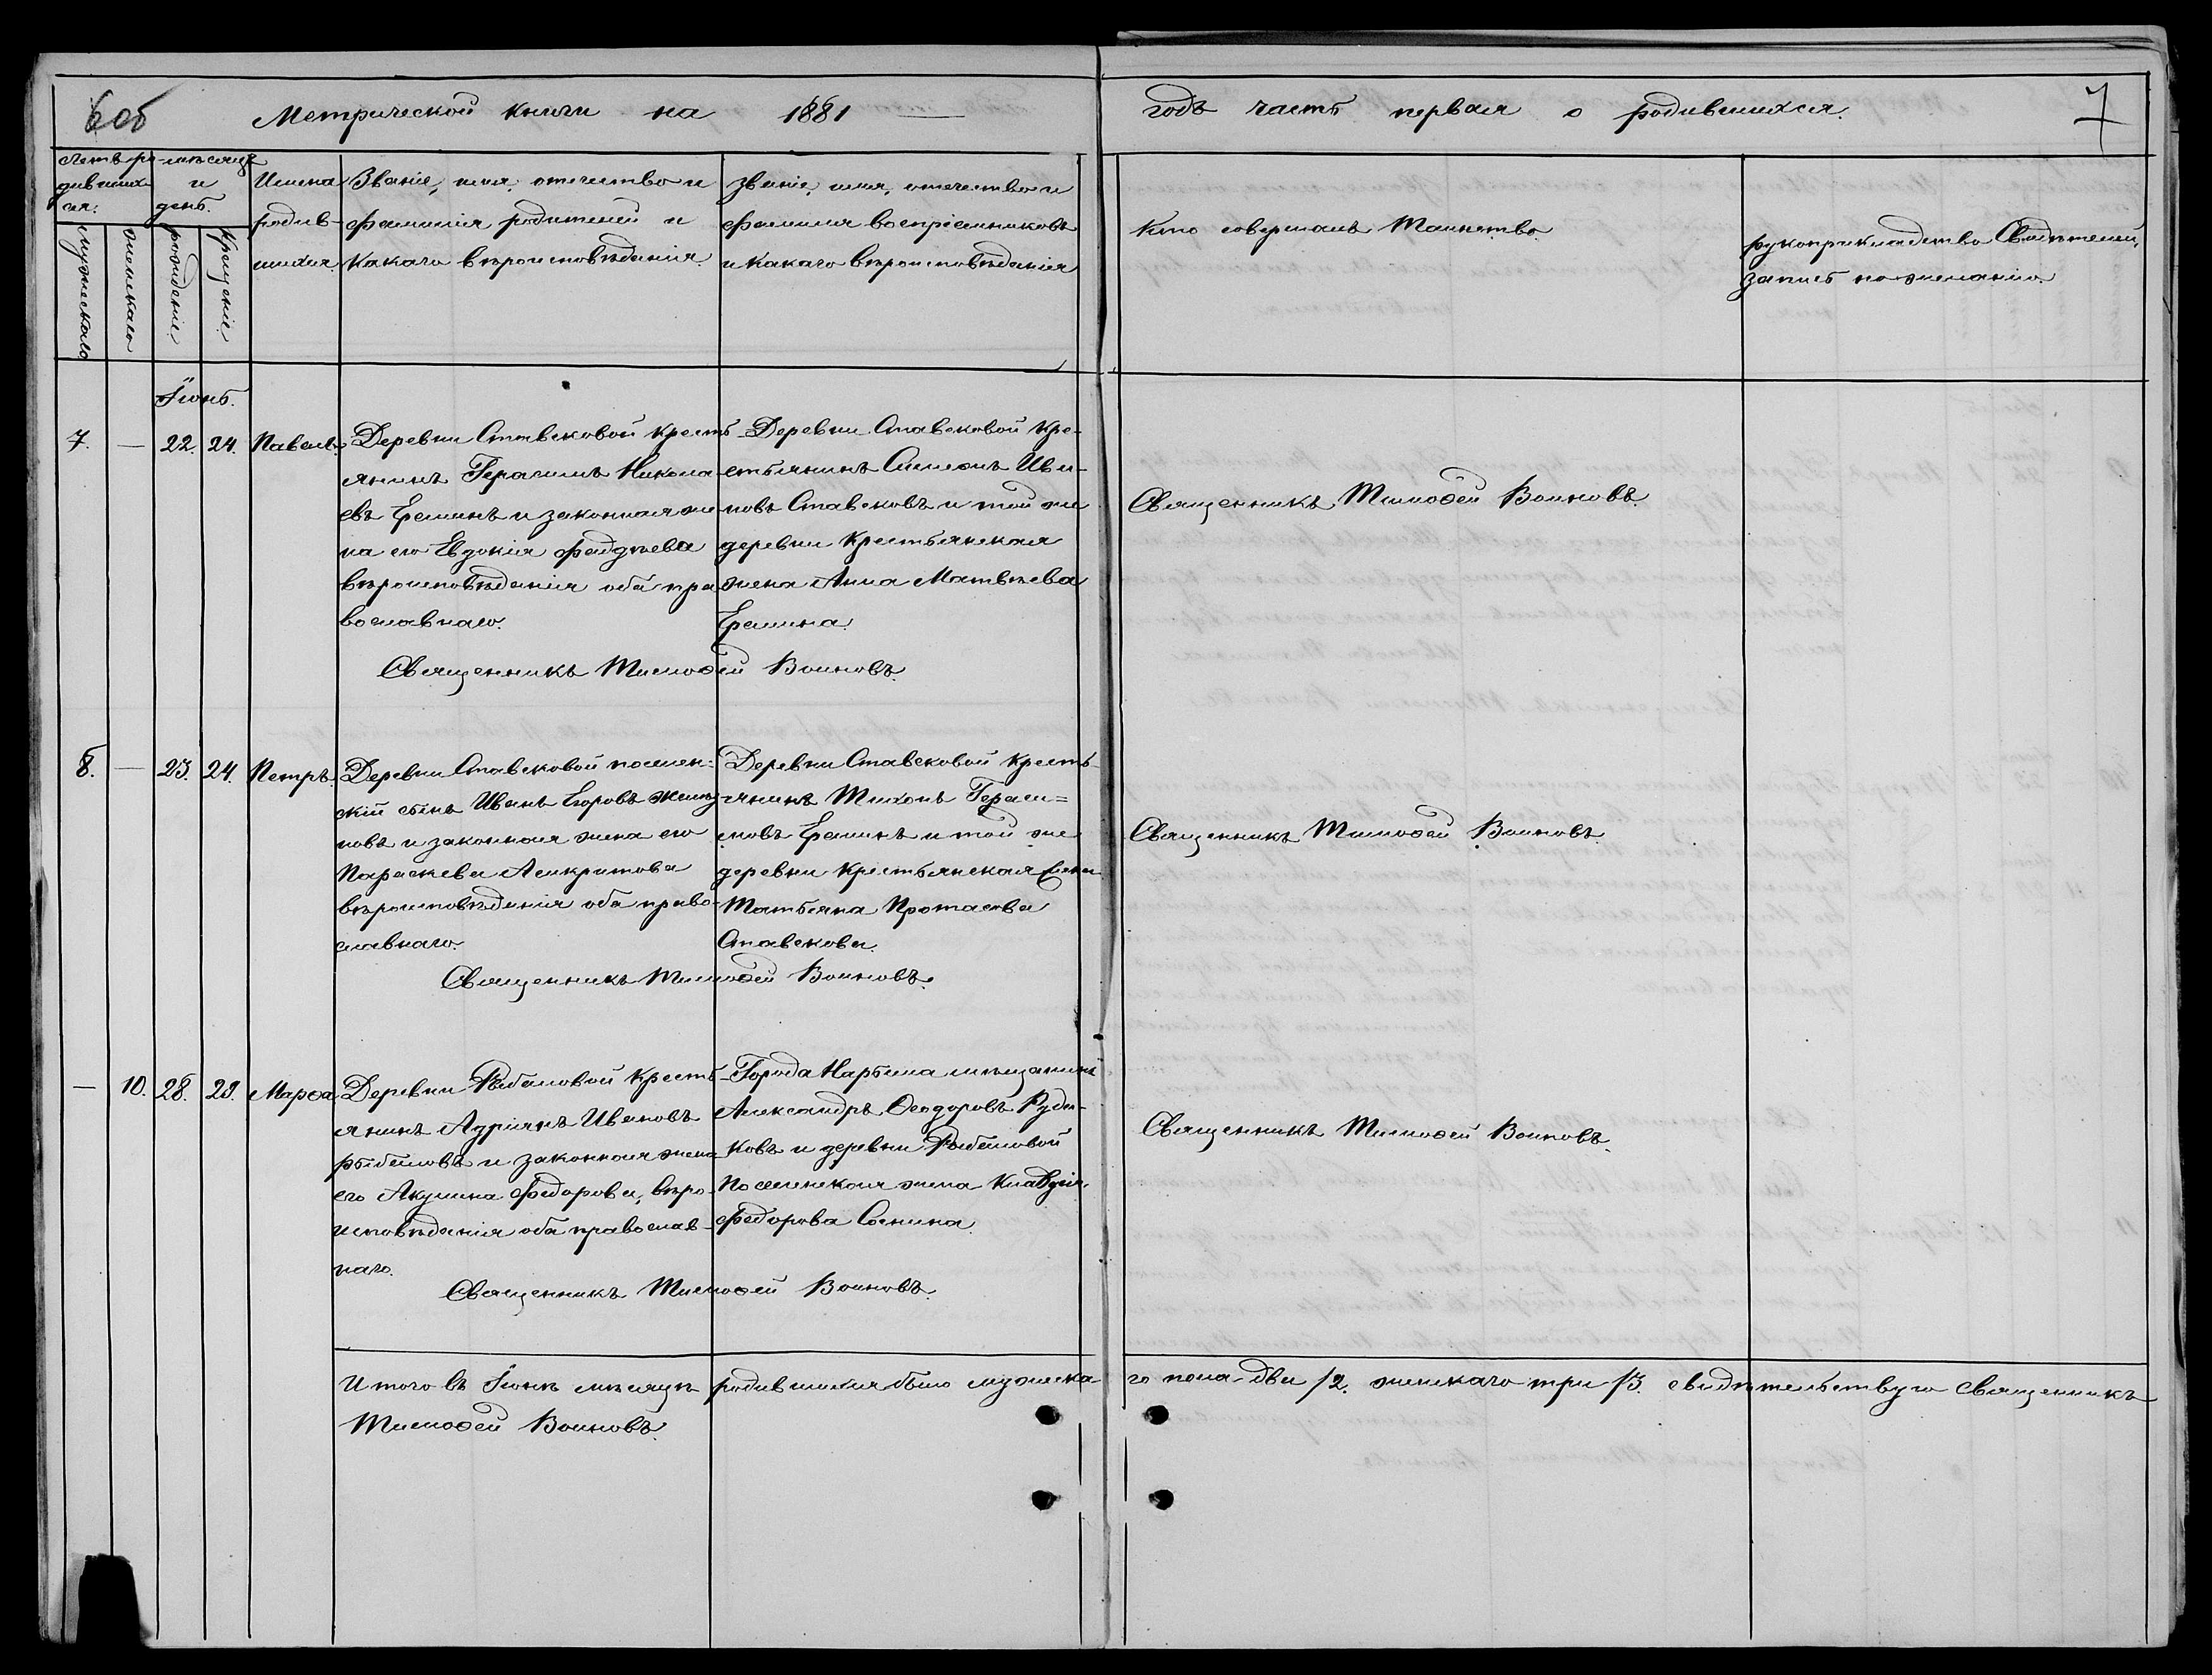 6 об
Метрической книги на 1881 годъ часть первая о родившихся. 7
Счетъ ро-
дивших-
ся.
мѣсяцъ
и
день.
мужескаго
женскаго
рожденіе
крещеніе
Имена
родив-
шихся.
Званіе, имя, отечество и
фамилія родителей и
какаго вѣроисповѣданія.
Званіе, имя, отечество и
фамилія воспріемниковъ
и какаго вѣроисповѣданія
Кто совершалъ Таинство.
рукоприкладство Свидѣтелей,
запись по желанію.
Іюнь.
7. — 22. 24. Павелъ.
Деревни Ставсковой кресть-
янинъ Герасимъ Никола-
евъ Ереминъ и законная же
на его Евдокія
вѣроисповѣданія оба пра
вославнаго.
Деревни Ставсковой кре-
стьянинъ Симеонъ Ива-
новъ Ставсковъ и той же
деревни крестьянская
жена Анна Матвѣева
Еремина.
Священникъ Тимофей Воиновъ.
Священникъ Тимофей Воиновъ.
8. — 23. 24. Петръ.
Деревни Ставсковой поселен-
скій сынъ Иванъ Егоровъ
новъ и законная жена его
Параскева Асикритова
вѣроисповѣданія оба право-
славнаго.
Деревни Ставсковой кресть-
янинъ Тихонъ Гераси=
мовъ Ереминъ и той же
деревни крестьянская жена
Татьяна Протасова
Ставскова.
Священникъ Тимофей Воиновъ.
Священникъ Тимофей Воиновъ.
— 10. 28. 29. Марѳа
Деревни Рыбаловой кресть-
янинъ Адріянъ Ивановъ
рыбаловъ и законная жена
его Акулина Федорова, вѣро-
исповѣданія оба православ-
наго.
Города Нарыма мѣщанинъ
Александръ Ѳеодоровъ Руда-
ковъ и деревни Рыбаловой
Поселенская жена Клавдія
Федорова Сенина.
Священникъ Тимофей Воиновъ.
Священникъ Тимофей Воиновъ.
Итого въ Іюнѣ мѣсяцѣ родившихся было мужеска-
го пола два /2. женскаго три /3. свидѣтельствую Священникъ
Тимофей Воиновъ.